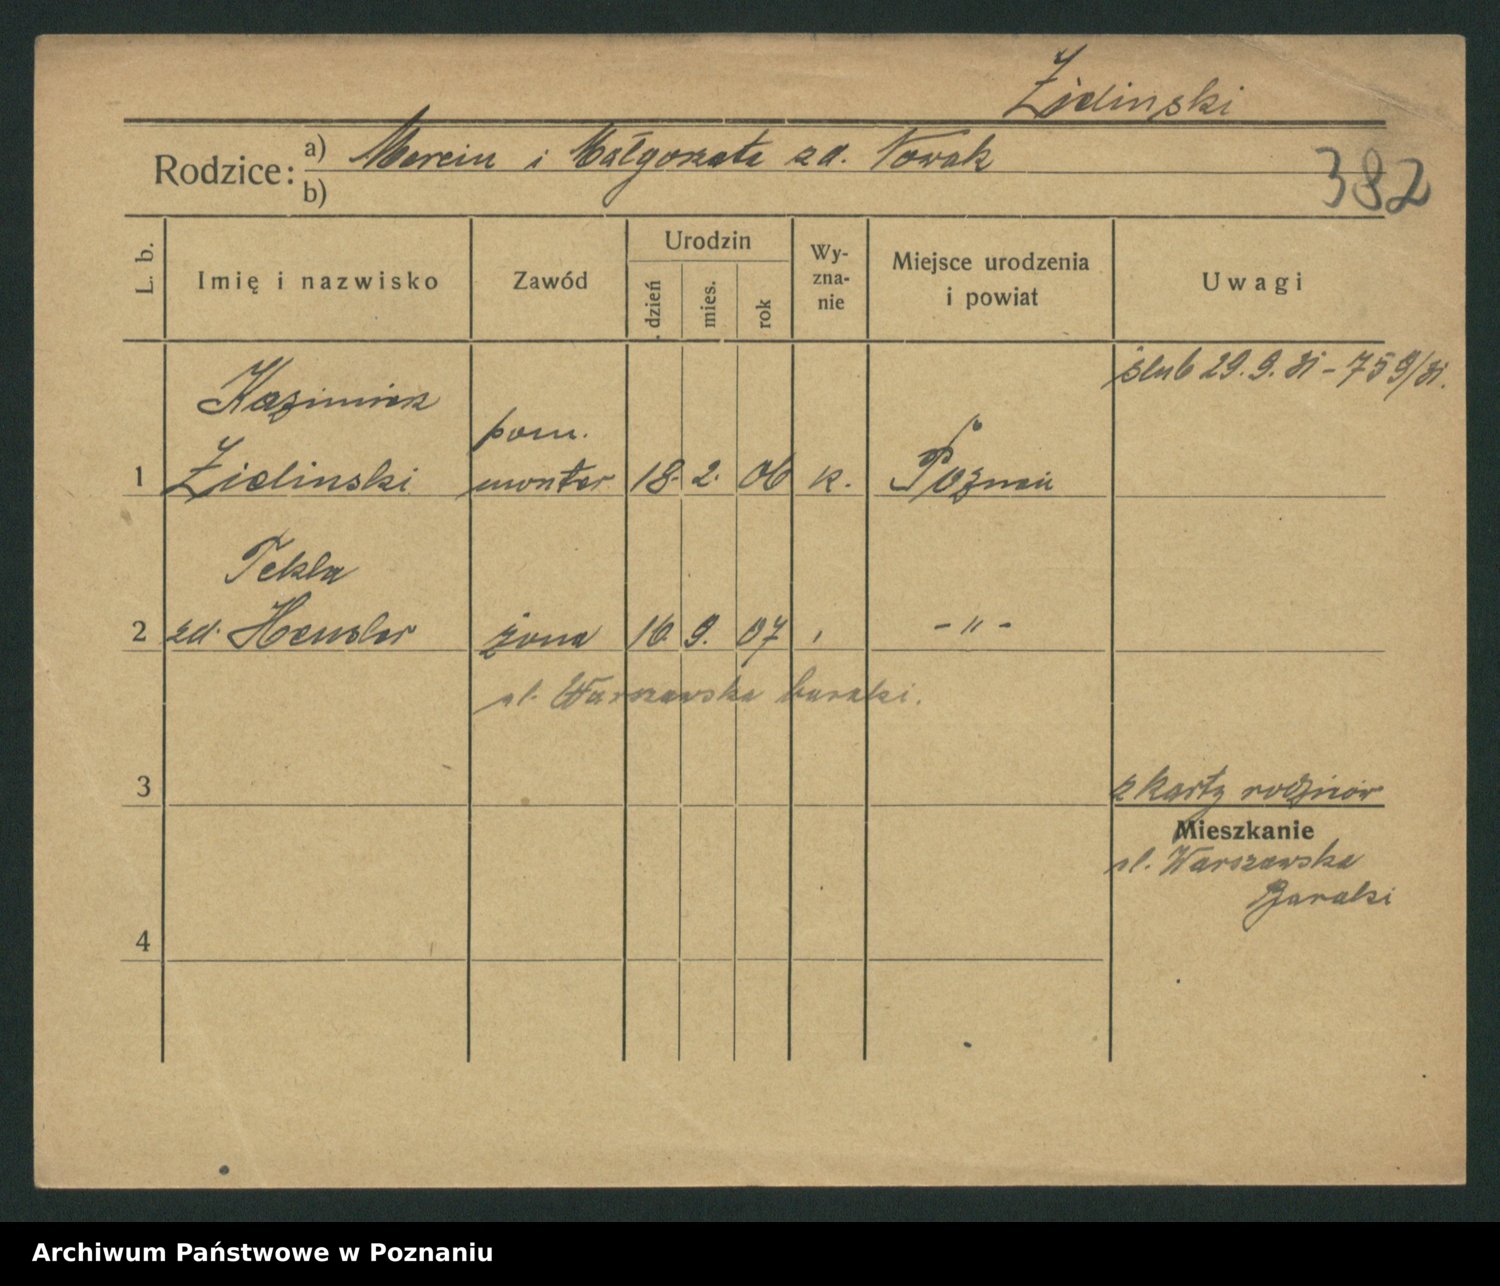 Zielinski
Rodzice: a) Marcin i Małgorzata zd. Nowak
b)
382
L. b.
Imię i nazwisko
Zawód
Urodzin
dzień
mies.
rok
Wy-
zna-
nie
Miejsce urodzenia
i powiat
Uwagi
ślub 29.9.31 - 759/31.
Kazimierz
pom.
1 Zielinski monter 18. 2. 06 k. Poznań
Tekla
2 zd. Hensler żona 16. 9. 07 , - " -
ul. Warszawska baraki.
3
z karty rodziców
Mieszkanie
ul. Warszawska
Baraki
4
Archiwum Państwowe w Poznaniu